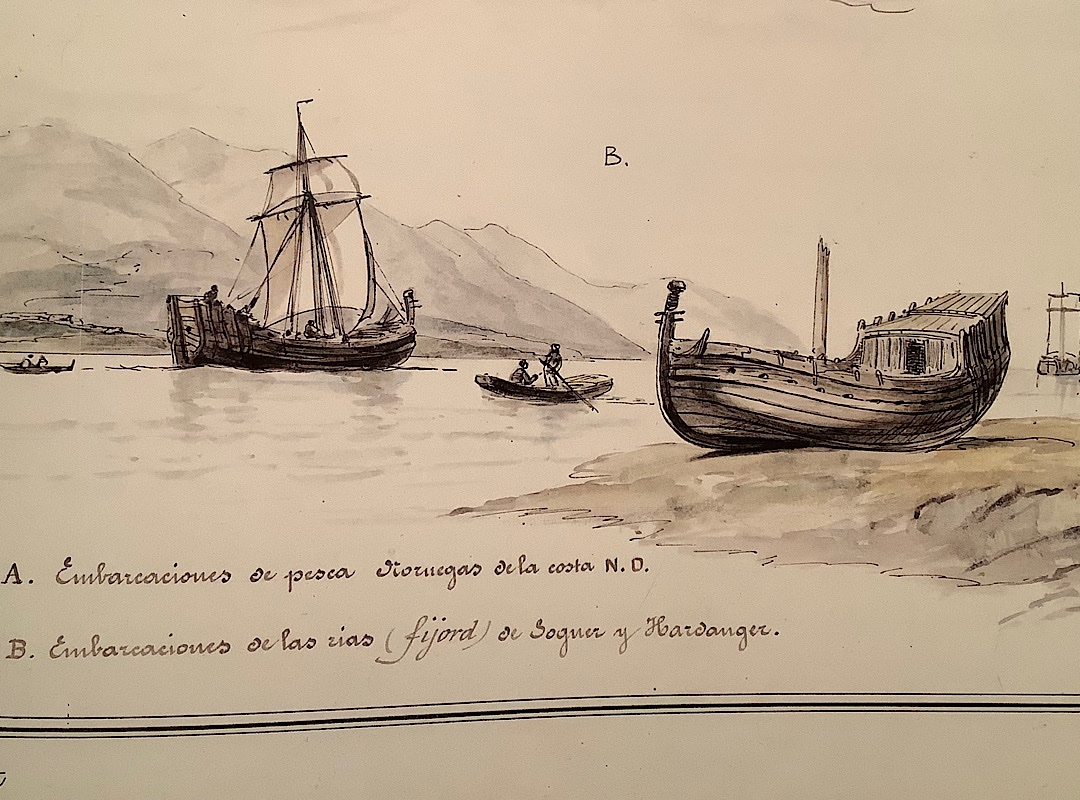 B.
A. Embarcaciones de pesca Noruegas de la costa N.O.
B. Embarcaciones de las rias (fijord) de Sogner y Hardanger.